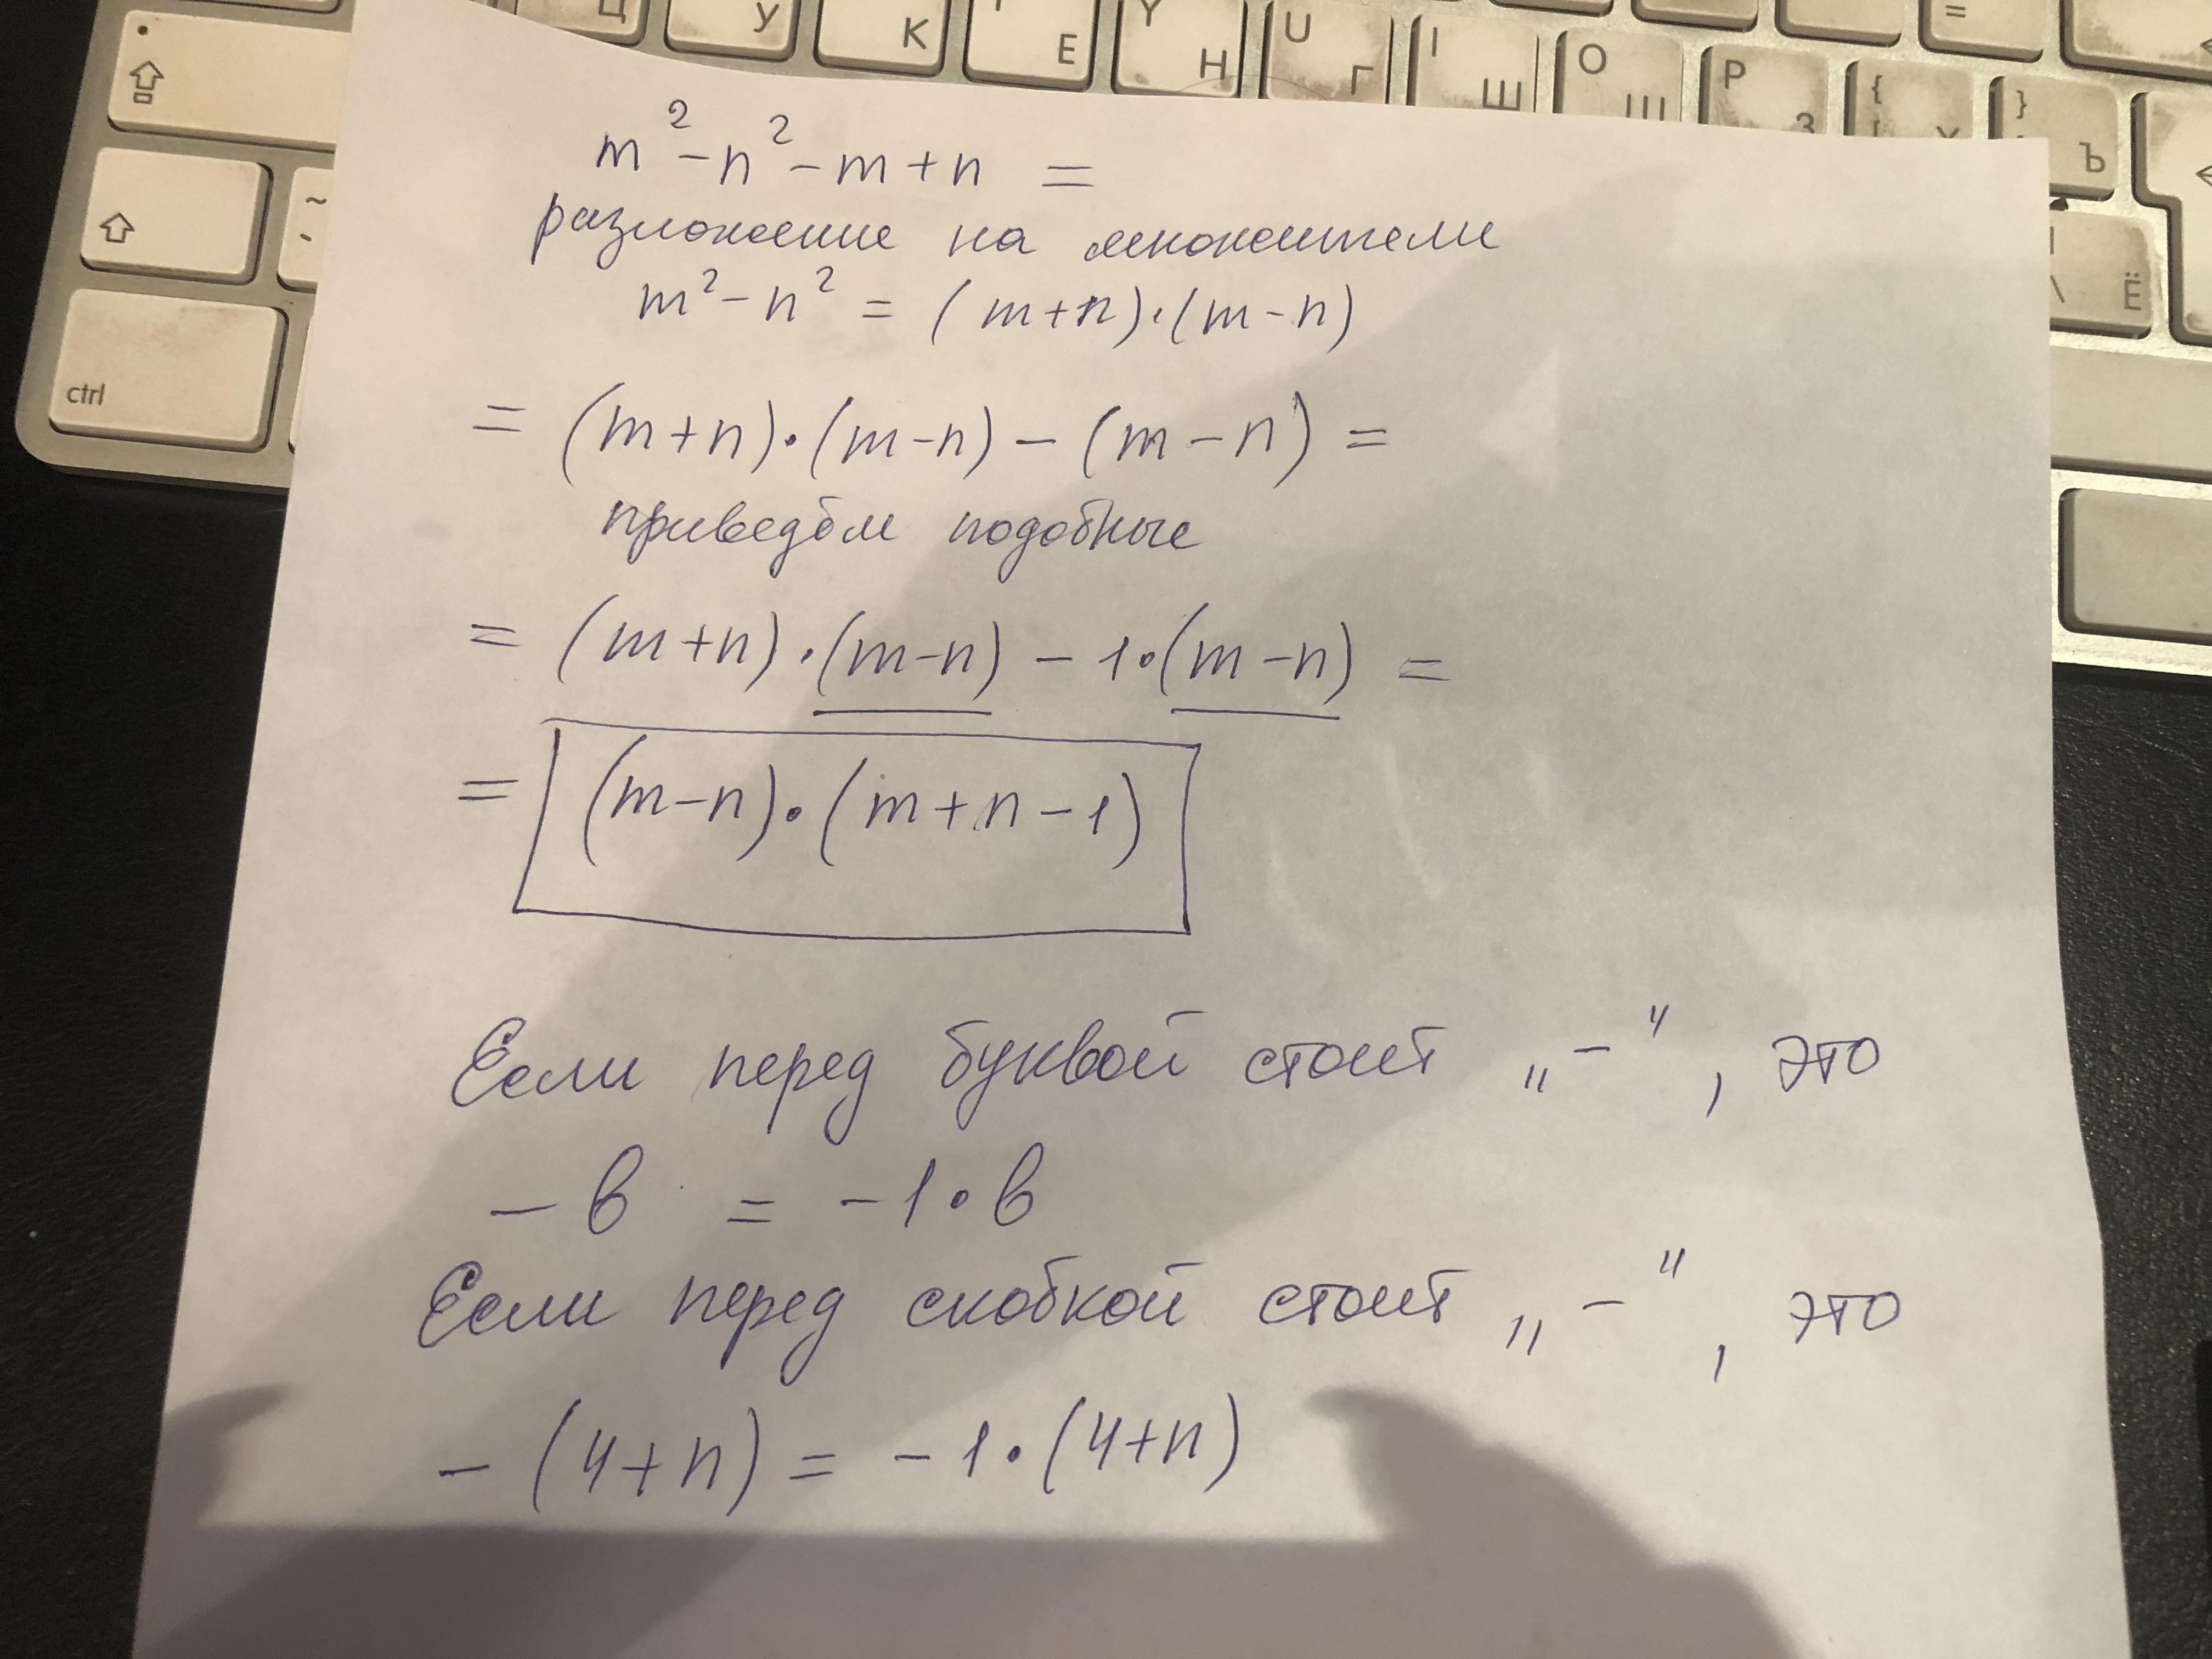 Ц У К Е Y Н U Г I Ш O Щ P З { [ Х } Ъ =
~ \ Ё
ctrl
m² - n² - m + n =
разложение на множители
m² - n² = (m+n)·(m-n)
= (m+n)·(m-n) - (m-n) =
приведём подобные
= (m+n)·(m-n) - 1·(m-n) =
= (m-n)·(m+n-1)
Если перед буквой стоит „-“, это
- в = -1·в
Если перед скобкой стоит „-“, это
- (4+n) = -1·(4+n)